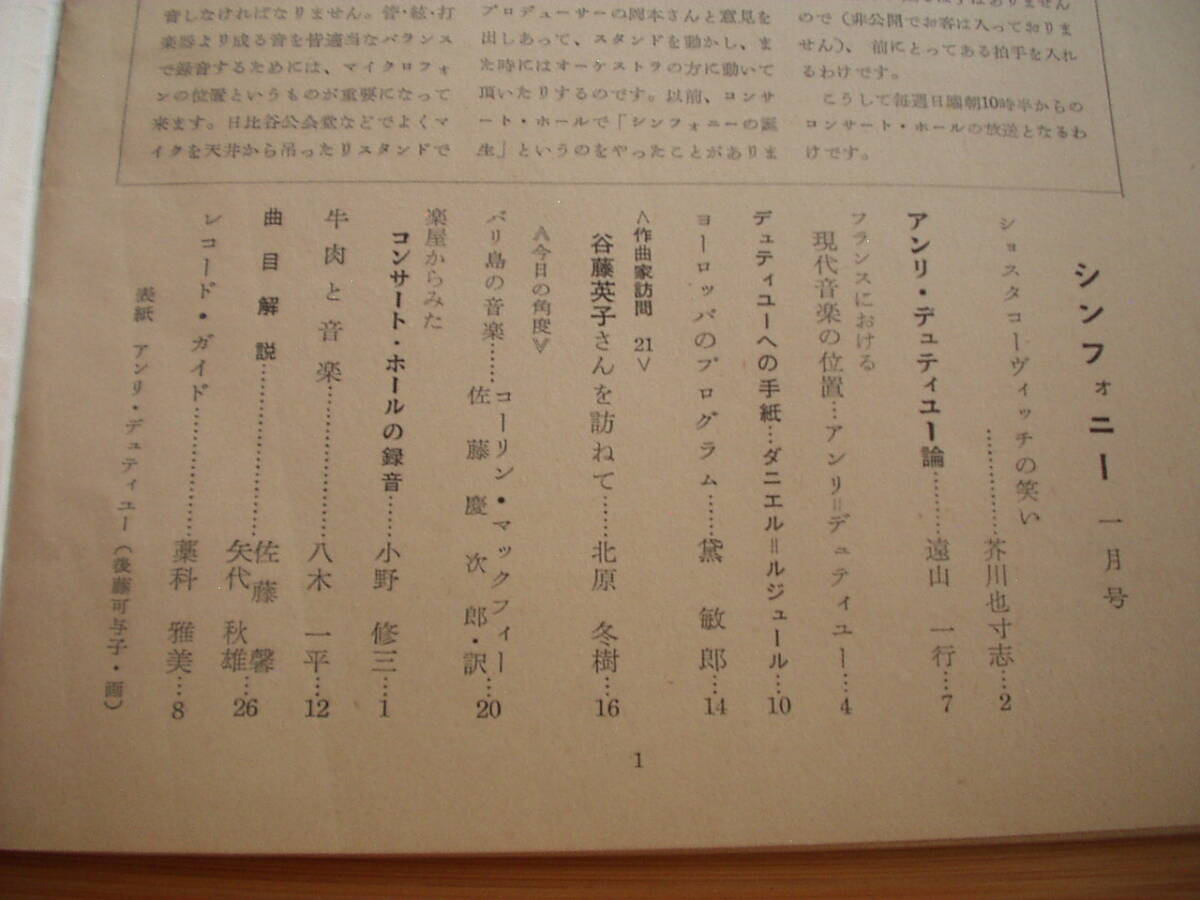 音しなければなりません。管・絃・打
楽器より成る音を皆適当なバランス
で録音するためには、マイクロフォ
ンの位置というものが重要になって
来ます。日比谷公会堂などでよくマ
イクを天井から吊ったりスタンドで
プロデューサーの岡本さんと意見を
出しあって、スタンドを動かし、ま
た時にはオーケストラの方に動いて
頂いたりするのです。以前、コンサ
ート・ホールで「シンフォニーの誕
生」というのをやったことがありま
ので（非公開でお客は入っておりま
せん）、前にとってある拍手を入れ
るわけです。
こうして毎週日曜朝10時半からの
コンサート・ホールの放送となるわ
けです。
シンフォニー 一月号
ショスタコーヴィッチの笑い
……………芥川也寸志…2
アンリ・デュティユー論………遠山 一行…7
フランスにおける
現代音楽の位置…アンリ＝デュティユー…4
デュティユーへの手紙…ダニエル＝ルジュール…10
ヨーロッパのプログラム……黛 敏郎…14
＜作曲家訪問 21＞
谷藤英子さんを訪ねて……北原 冬樹…16
≪今日の角度≫
バリ島の音楽……コーリン・マックフィー
佐藤慶次郎・訳…20
楽屋からみた
コンサート・ホールの録音……小野 修三…1
牛肉と音楽………………八木 一平…12
曲目解説………………佐藤 馨
矢代 秋雄…26
レコード・ガイド……………藁科 雅美…8
表紙 アンリ・デュティユー（後藤可与子・画）
1